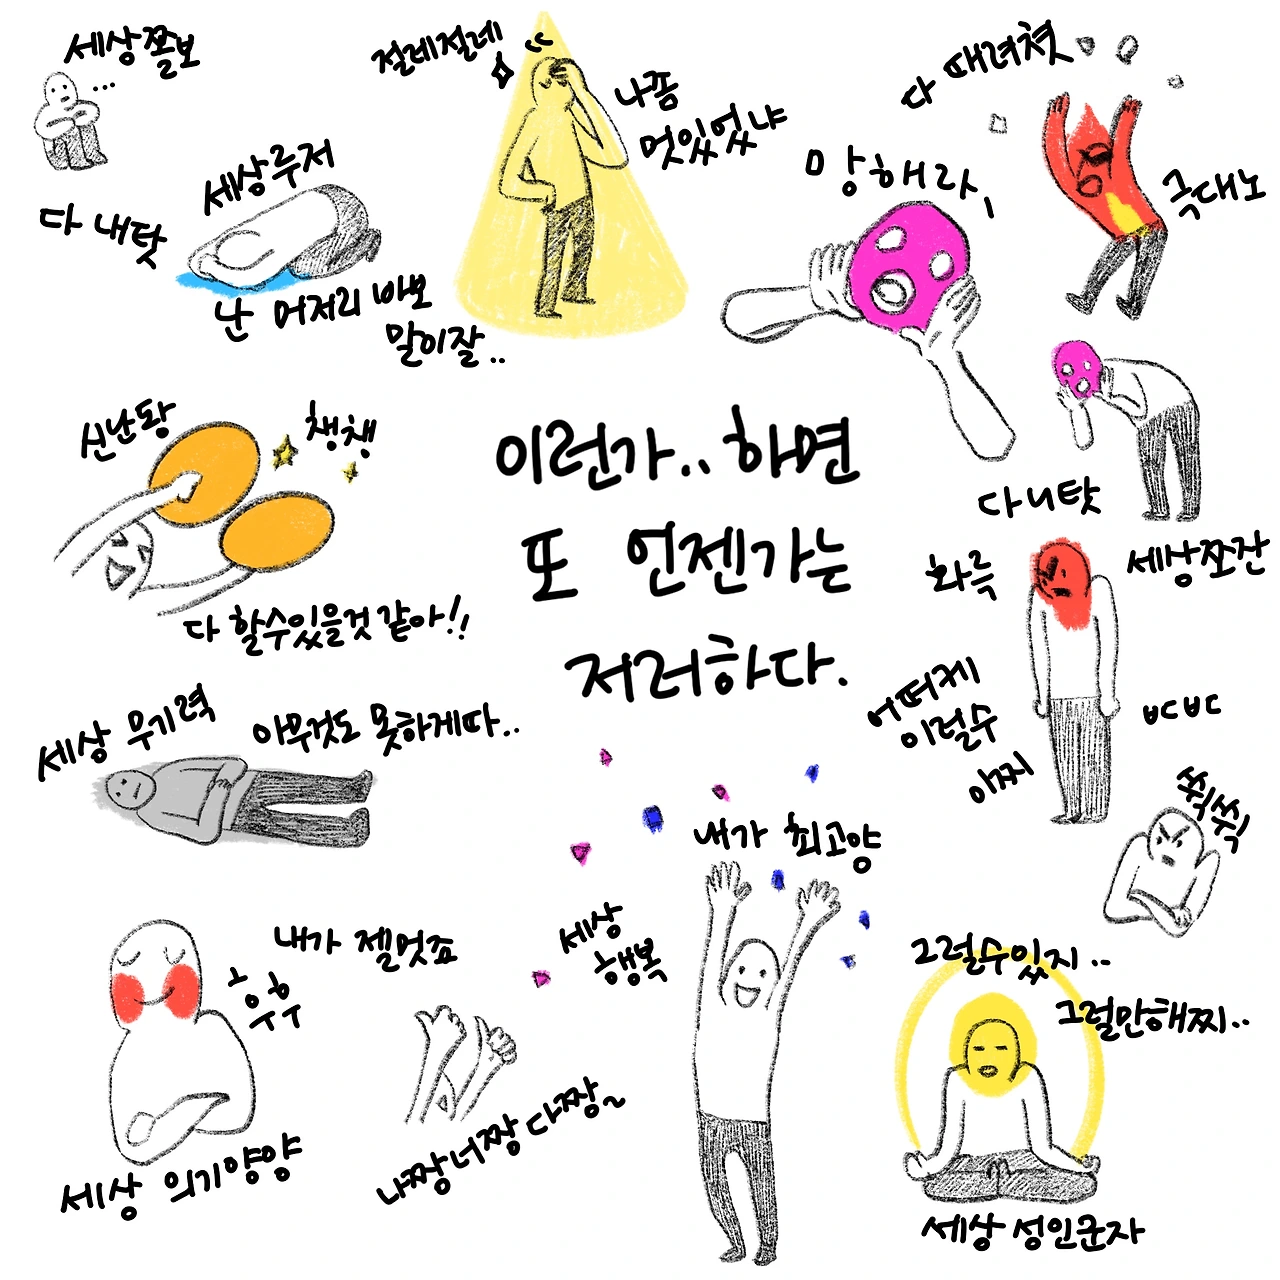 세상쫄보
...
절레절레
나좀
멋있었냐
다 때려쳣
극대노
망해라,
세상루저
다 내탓
난 머저리 바보
말미잘..
신난황
챙챙
다 할수있을것 같아!!
이런가..하면
또 언젠가는
저러하다.
다 니탓
화륵
세상쪼잔
어떠케
이럴수
이찌
ㅂㄷㅂㄷ
씩씩
세상 무기력
아무것도 못하게따..
내가 최고양
세상
행복
내가 젤멋죠
후후
나짱너짱 다짱~
세상 의기양양
그럴수있지..
그럴만해찌..
세상 성인군자